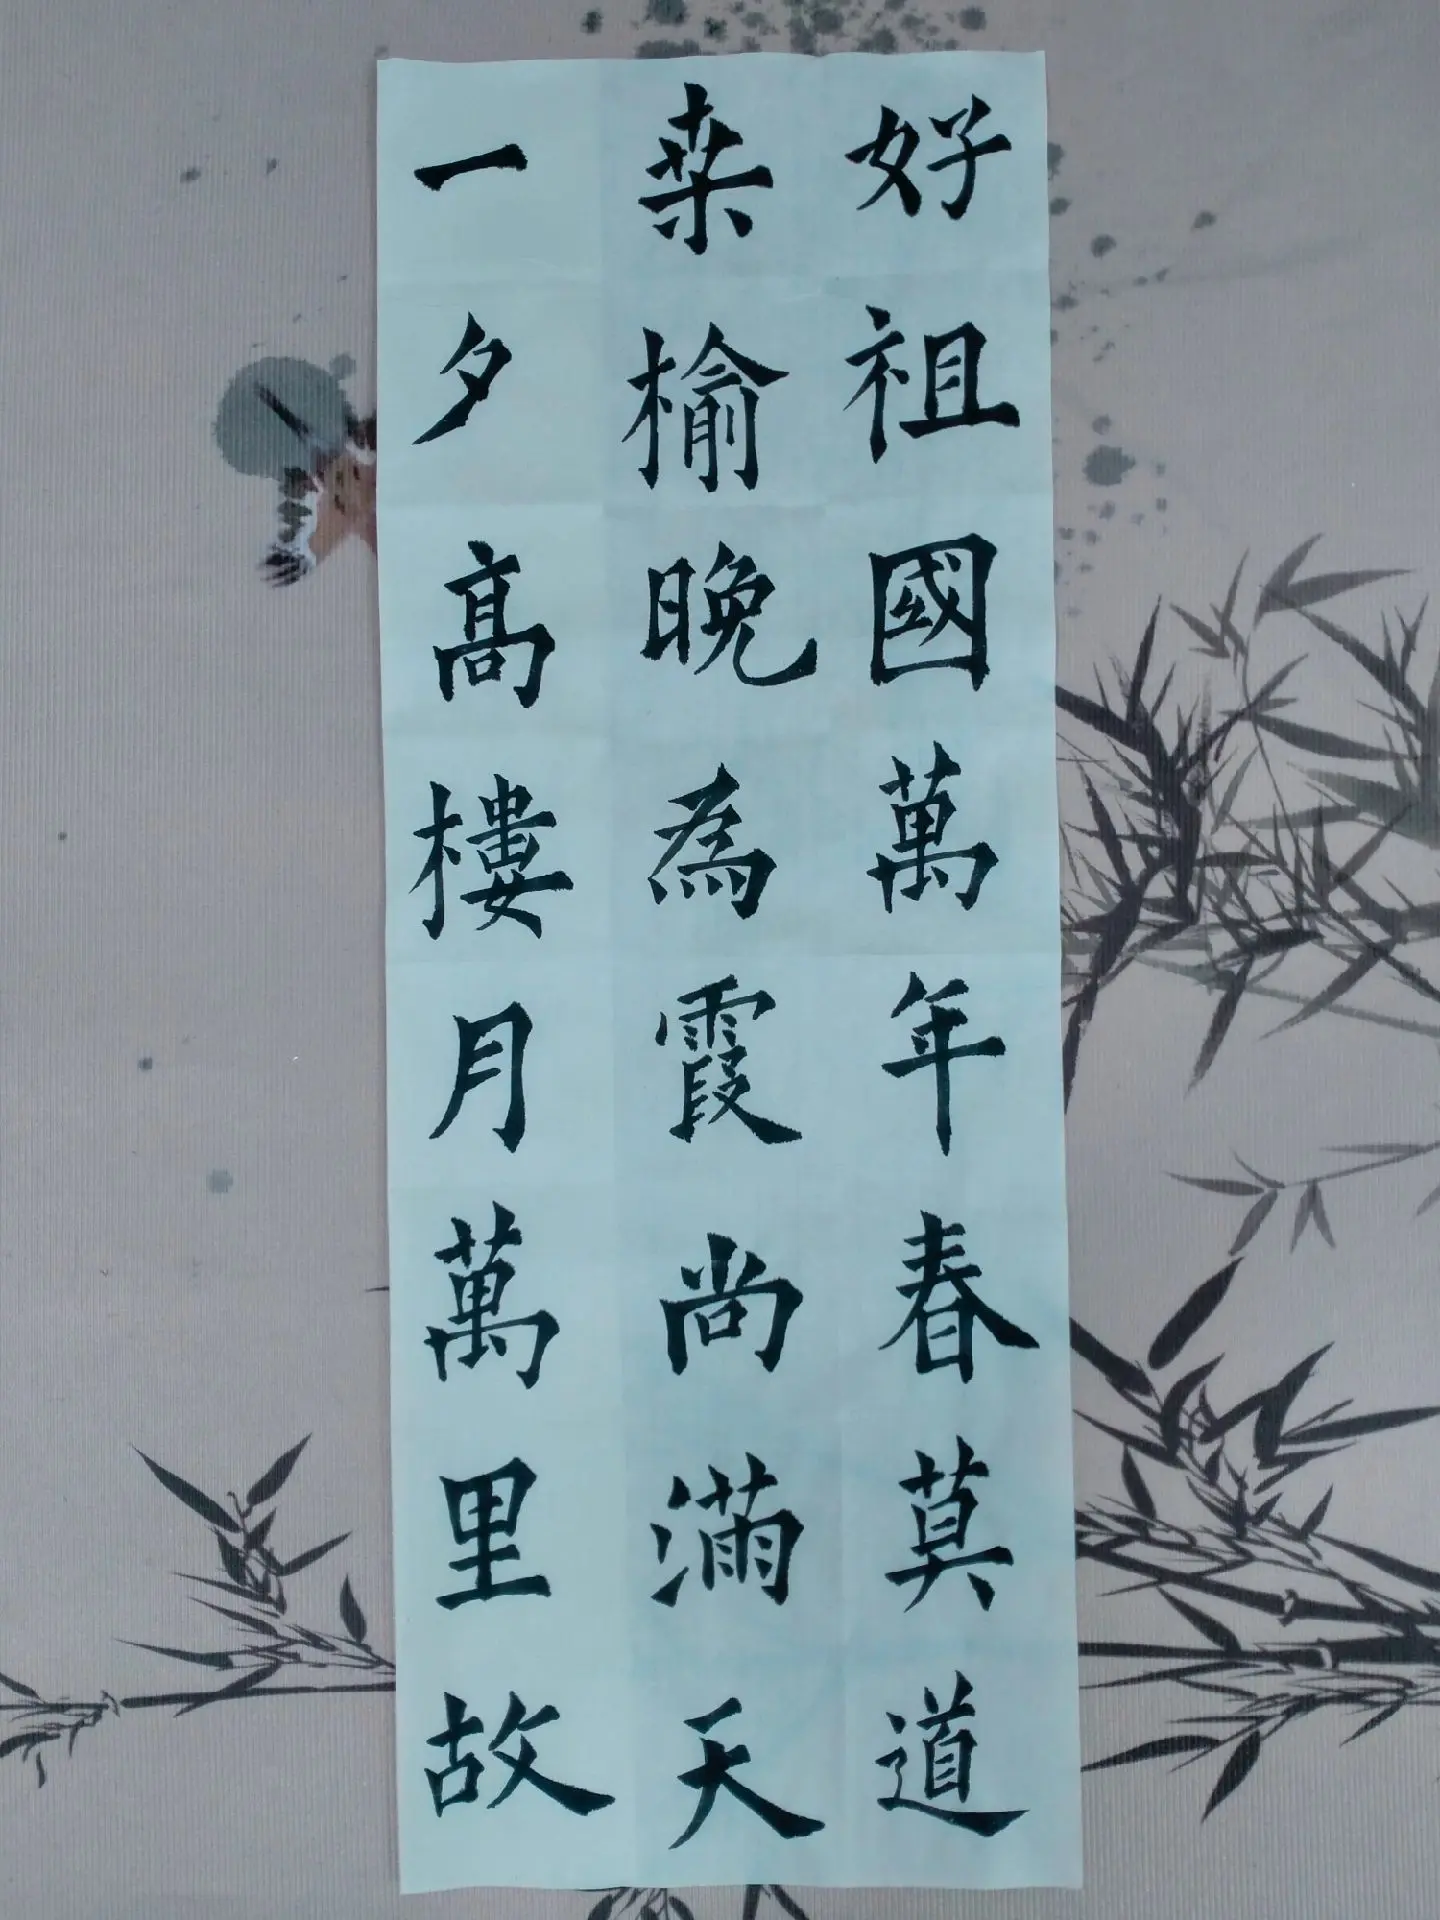 好祖國萬年春莫道
桒榆晚為霞尚滿天
一夕高樓月萬里故